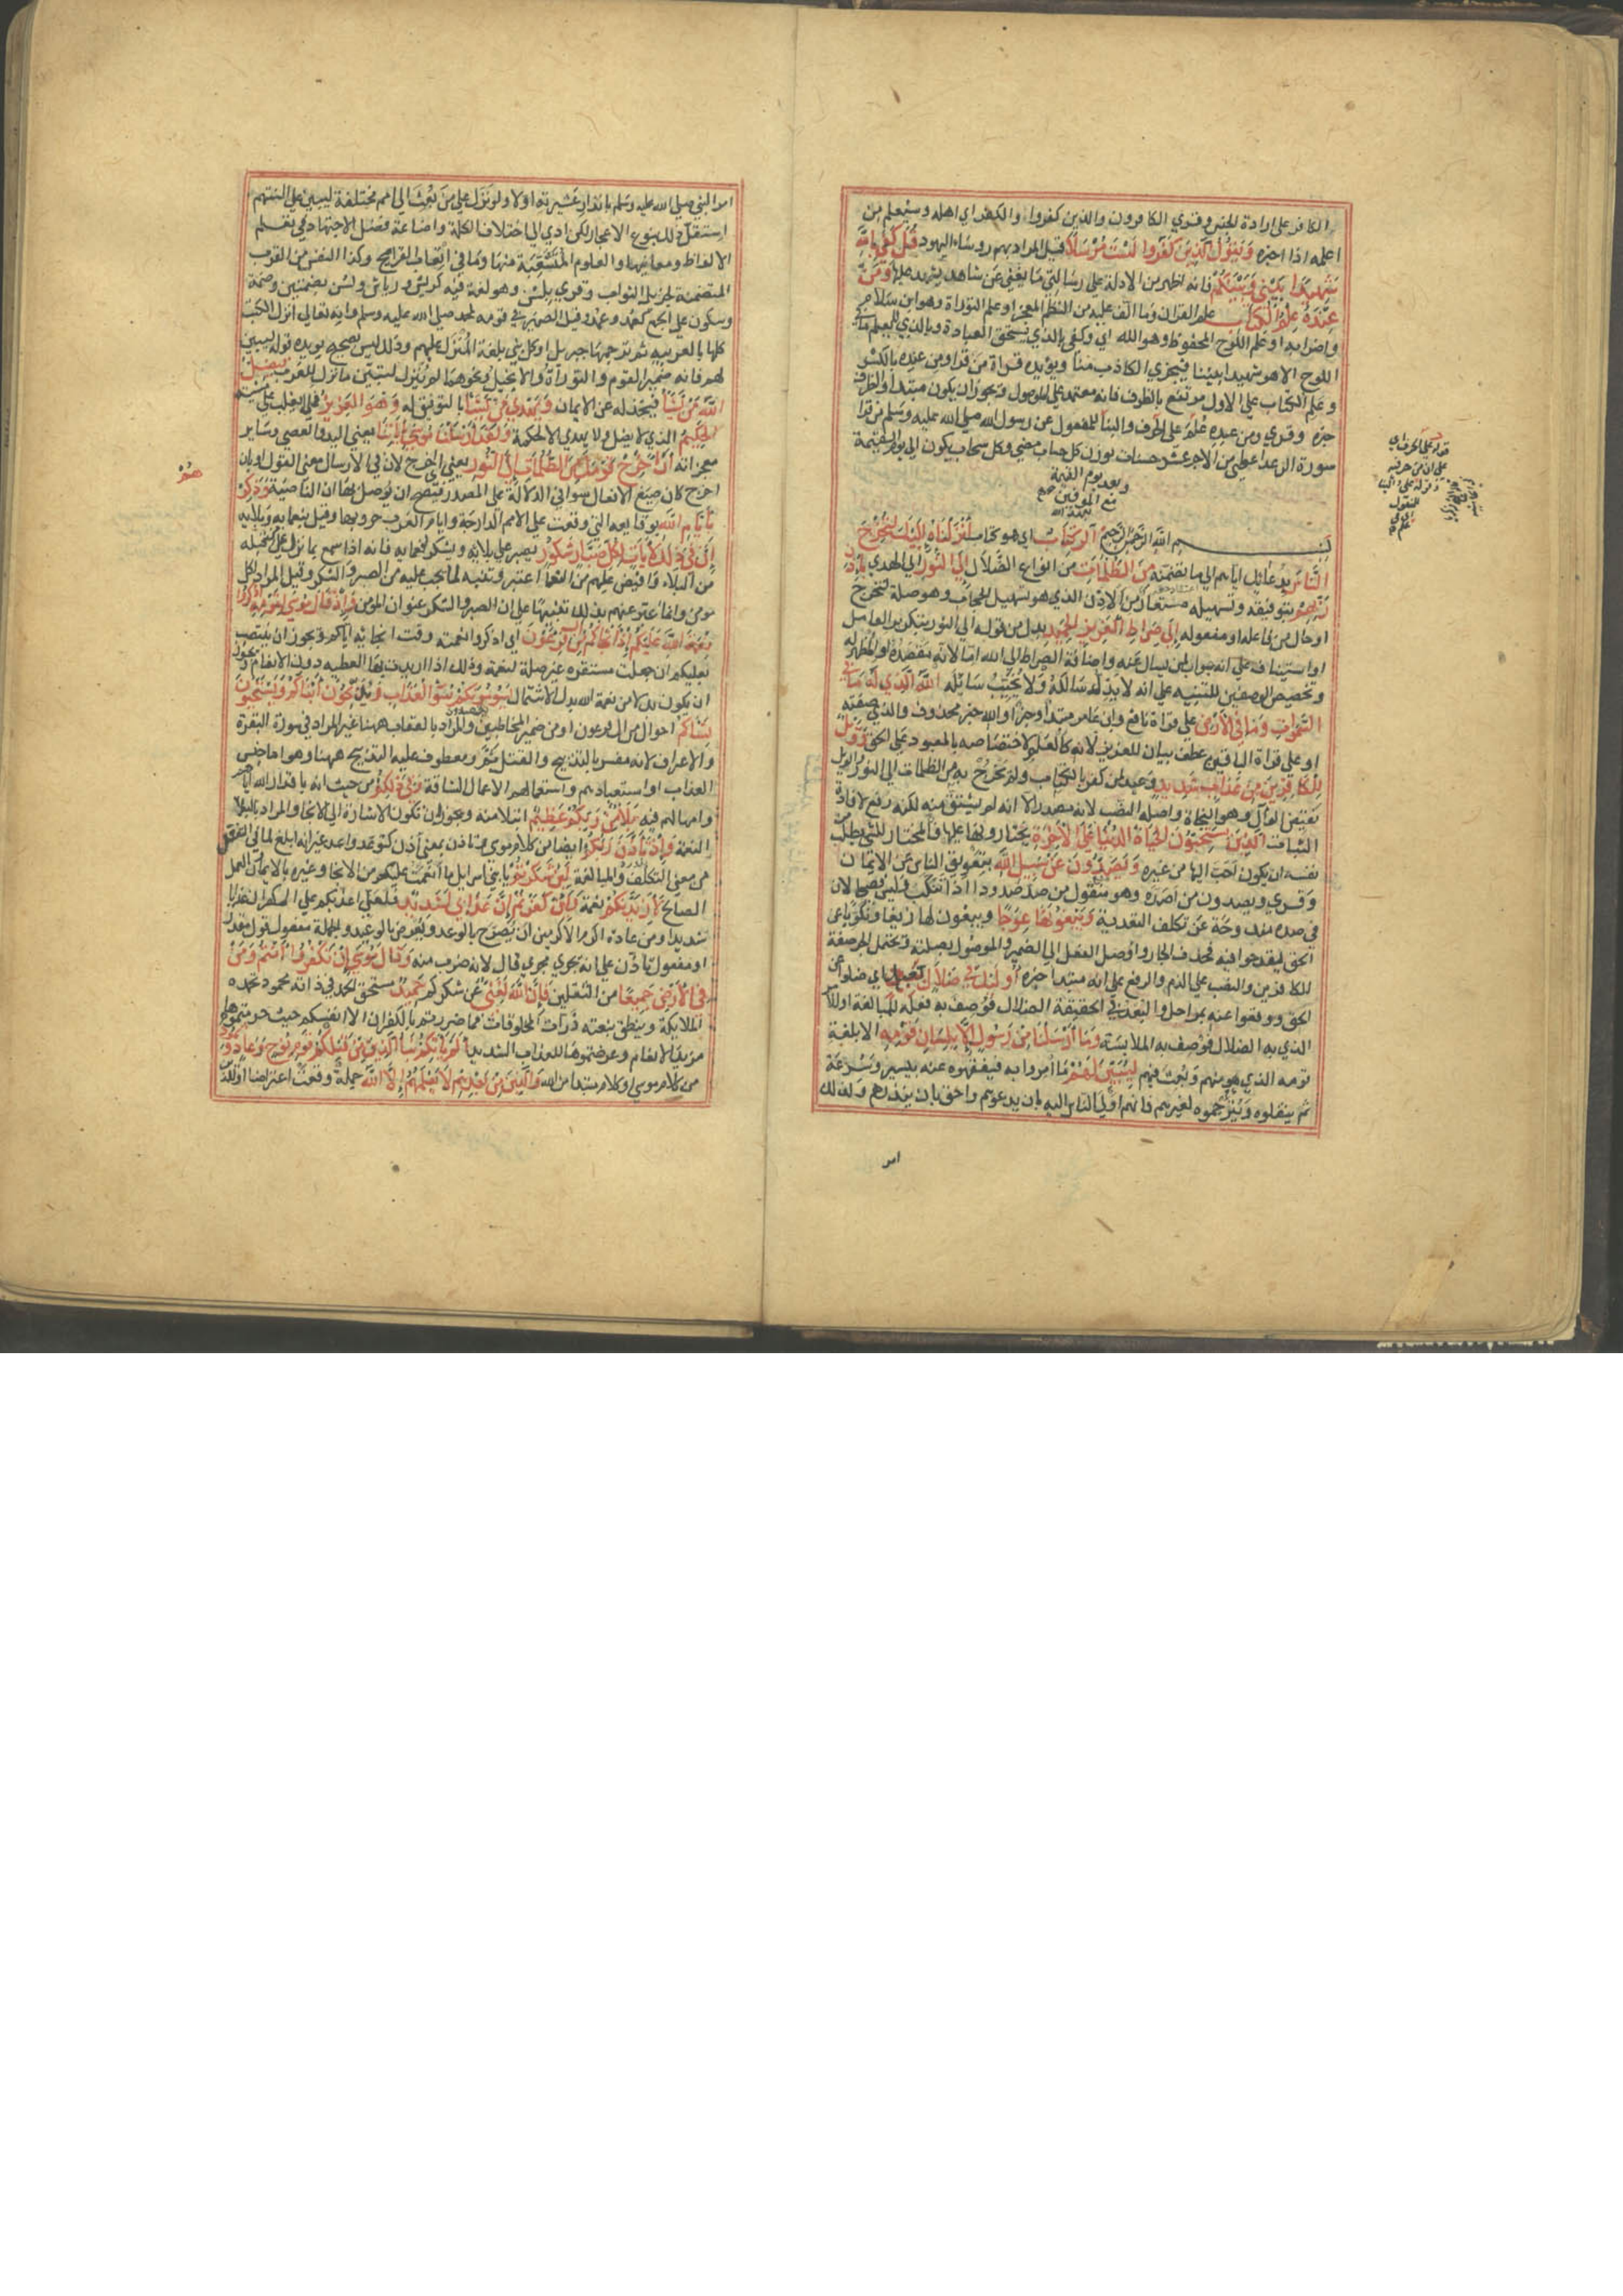 الكافر على ارادة الجنس وقري الكافرون والذين كفروا والكفر اي اهله وسيعلم من
اعلمه اذا اخبره وَيَقُولُ الَّذِينَ كَفَرُوا لَسْتَ مُرْسَلًا قيل المراد بهم روساء اليهود قُلْ كَفَى بِاللَّهِ
شَهِيدًا بَيْنِي وَبَيْنَكُمْ فانه اظهر من الادلة على رسالتي ما يغني عن شاهد يشهد عليها وَمَنْ
عِنْدَهُ عِلْمُ الْكِتَابِ علم القران وما الف عليه من النظم المعجز او علم التوراة وهو ابن سلام
واضرابه او علم اللوح المحفوظ وهو الله اي وكفى بالذي يستحق العبادة وبالذي لا يعلم ما في
اللوح الا هو شهيدا بيننا فيخزي الكاذب منا ويؤيده قراة من قرا ومن عنده بالكسر
وعلم الكتاب على الاول مرتفع بالظرف فانه معتمد على الموصول ويجوز ان يكون مبتدا والظرف
خبره وقري ومن عنده علم على الحرف والبنا للمفعول عن رسول الله صلى الله عليه وسلم من قرا
سورة الرعد اعطي من الاجر عشر حسنات بوزن كل سحاب مضى وكل سحاب يكون الى يوم القيمة
وبعد يوم القيمة
مع الموفين بعهد الله
بسم الله الرحمن الرحيم الر كِتَابٌ اي هو كتاب أَنْزَلْنَاهُ إِلَيْكَ لِتُخْرِجَ
النَّاسَ بدعائك اياهم الى ما تضمنه مِنَ الظُّلُمَاتِ من انواع الضلال إِلَى النُّورِ الى الهدى بِإِذْنِ
رَبِّهِمْ بتوفيقه وتسهيله مستعار من الاذن الذي هو تسهيل الحجاب وهو صلة لتخرج
او حال من فاعله او مفعوله إِلَى صِرَاطِ الْعَزِيزِ الْحَمِيدِ بدل من قوله الى النور بتكرير العامل
او استيناف على انه جواب لمن يسال عنه واضافة الصراط الى الله اما لانه مقصده او المظهر له
وتخصيص الوصفين للتنبيه على انه لا يذل سالكه ولا يخيب سابله اللَّهِ الَّذِي لَهُ مَا فِي
السَّمَوَاتِ وَمَا فِي الْأَرْضِ على قراة نافع وابن عامر مبتدا وخبر او الله خبر محذوف والذي صفته
او على قراة الباقين عطف بيان للعزيز لانه كالعلم لاختصاصه بالمعبود على الحق وَوَيْلٌ
لِلْكَافِرِينَ مِنْ عَذَابٍ شَدِيدٍ وعيد لمن كفر بالكتاب ولم يخرج به من الظلمات الى النور والويل
نقيض الوال وهو النجاة واصله النصب لانه مصدر الا انه لم يشتق منه لكنه رفع لافادة
الثبات الَّذِينَ يَسْتَحِبُّونَ الْحَيَاةَ الدُّنْيَا عَلَى الْآخِرَةِ يختارونها عليها فان المختار للشي يطلب من
نفسه ان يكون احب اليها من غيره وَيَصُدُّونَ عَنْ سَبِيلِ اللَّهِ بتعويق الناس عن الايمان
وقري ويصدون من اصده وهو منقول من صد صدودا اذا تنكب وليس فصيحا لان
في صده مندوحة عن تكلف التعدية وَيَبْغُونَهَا عِوَجًا ويبغون لها زيغا ونكوبا عن
الحق ليقدحوا فيه فحذف الجار واوصل الفعل الى الضمير والموصول بصلته يحتمل الجر صفة
للكافرين والنصب على الذم والرفع على انه مبتدا خبره أُولَئِكَ فِي ضَلَالٍ بَعِيدٍ اي ضلوا عن
الحق ووقعوا عنه بمراحل والبعد في الحقيقة الضلال فوصف به فعله للمبالغة او للامر
الذي به الضلال فوصف به لملابسته وَمَا أَرْسَلْنَا مِنْ رَسُولٍ إِلَّا بِلِسَانِ قَوْمِهِ الا بلغة
قومه الذي هو منهم وبعث فيهم لِيُبَيِّنَ لَهُمْ ما امروا به فيفقهوه عنه بيسير وسرعة
ثم ينقلوه ويترجموه لغيرهم فانهم اولى الناس اليه بان يدعوهم واحق بان ينذرهم ولذلك
امر
امر النبي صلى الله عليه وسلم بانذار عشيرته اولا ولو نزل على من بعث الى امم مختلفة ليبين على السنتهم
استقل ذلك بنوع الاعجاز لكن ادى الى اختلاف الكلمة واضاعة فضل الاجتهاد في تعلم
الالفاظ ومعانيها والعلوم المتشعبة منها وما في اتعاب القرايح وكذا النفس من القرب
المتضمنة لجزيل الثواب وقري بلسن وهو لغة فيه كريش ورياش ولسن بضمتين وضمة
وسكون على الجمع كعمد وعمد وقيل الضمير في قومه لمحمد صلى الله عليه وسلم وانه تعالى انزل الكتب
كلها بالعربية ثم ترجمها جبريل او كل نبي بلغة المنزل عليهم وذلك ليس بصحيح يرده قوله ليبين
لهم فانه ضمير القوم والتوراة والانجيل ونحوهما لم تنزل لتبين ما نزل للعرب فَيُضِلُّ
اللَّهُ مَنْ يَشَاءُ فيخذله عن الايمان وَيَهْدِي مَنْ يَشَاءُ بالتوفيق له وَهُوَ الْعَزِيزُ فلا يغلب على مشيته
الْحَكِيمُ الذي لا يضل ولا يهدي الا لحكمة وَلَقَدْ أَرْسَلْنَا مُوسَى بِآيَاتِنَا يعني اليد والعصى وساير
معجزاته أَنْ أَخْرِجْ قَوْمَكَ مِنَ الظُّلُمَاتِ إِلَى النُّورِ يعني اخرج لان في الارسال معنى القول او بان
اخرج كان صيغ الافعال سوا في الدلالة على المصدر فيصح ان يوصل بها ان الناصبة وَذَكِّرْهُمْ
بِأَيَّامِ اللَّهِ بوقايعه التي وقعت على الامم الدارجة وايام العرب حروبها وقيل بنعمايه وبلايه
إِنَّ فِي ذَلِكَ لَآيَاتٍ لِكُلِّ صَبَّارٍ شَكُورٍ يصبر على بلايه ويشكر لنعمايه فانه اذا سمع بما نزل على من قبله
من البلاء وافيض عليهم من النعما اعتبر وتنبه لما يجب عليه من الصبر والشكر وقيل المراد لكل
مومن وانما عبر عنهم بذلك تنبيها على ان الصبر والشكر عنوان المومن وَإِذْ قَالَ مُوسَى لِقَوْمِهِ اذْكُرُوا
نِعْمَةَ اللَّهِ عَلَيْكُمْ إِذْ أَنْجَاكُمْ مِنْ آلِ فِرْعَوْنَ اي اذكروا نعمته وقت انجائه اياكم ويجوز ان ينتصب
بعليكم ان جعلت مستقرة غير صلة لنعمة وذلك اذا اريدت بها العطية دون الانعام ويجوز
ان يكون بدلا من نعمة الله بدل الاشتمال يَسُومُونَكُمْ سُوءَ الْعَذَابِ وَيُذَبِّحُونَ أَبْنَاءَكُمْ وَيَسْتَحْيُونَ
نِسَاءَكُمْ احوال من ال فرعون او من ضمير المخاطبين والمراد بالعذاب ههنا غير المراد في سورة البقرة
والاعراف لانه مفسر بالتذبيح والقتل ثم ومعطوف عليه التذبيح ههنا وهو اما جنس
العذاب او استعبادهم واستعمالهم الاعمال الشاقة وَفِي ذَلِكُمْ من حيث انه باقدار الله اياهم
وامهالهم فيه بَلَاءٌ مِنْ رَبِّكُمْ عَظِيمٌ ابتلا منه ويجوز ان تكون الاشارة الى الانجا والمراد بالبلا
النعمة وَإِذْ تَأَذَّنَ رَبُّكُمْ ايضا من كلام موسى وتاذن بمعنى اذن كتوعد واوعد غير انه ابلغ لما في التفعل
من معنى التكلف والمبالغة لَئِنْ شَكَرْتُمْ يا بني اسرايل ما انعمت عليكم من الانجا وغيره بالايمان والعمل
الصالح لَأَزِيدَنَّكُمْ نعمة وَلَئِنْ كَفَرْتُمْ إِنَّ عَذَابِي لَشَدِيدٌ فلعلي اعذبكم على الكفران عذابا
شديدا ومن عادة اكرم الاكرمين ان يصرح بالوعد ويعرض بالوعيد والجملة مقول قول مقدر
او مفعول تاذن على انه يجري مجرى قال لانه ضرب منه وَقَالَ مُوسَى إِنْ تَكْفُرُوا أَنْتُمْ وَمَنْ
فِي الْأَرْضِ جَمِيعًا من الثقلين فَإِنَّ اللَّهَ لَغَنِيٌّ عن شكركم حَمِيدٌ مستحق للحمد في ذاته محمود تحمده
الملايكة وينطق بنعمته ذرات المخلوقات فما ضررتم بالكفران الا انفسكم حيث حرمتموها
مزيد الانعام وعرضتموها للعذاب الشديد أَلَمْ يَأْتِكُمْ نَبَأُ الَّذِينَ مِنْ قَبْلِكُمْ قَوْمِ نُوحٍ وَعَادٍ وَثَمُودَ
من كلام موسى او كلام مبتدا من الله وَالَّذِينَ مِنْ بَعْدِهِمْ لَا يَعْلَمُهُمْ إِلَّا اللَّهُ جملة وقعت اعتراضا او الذين